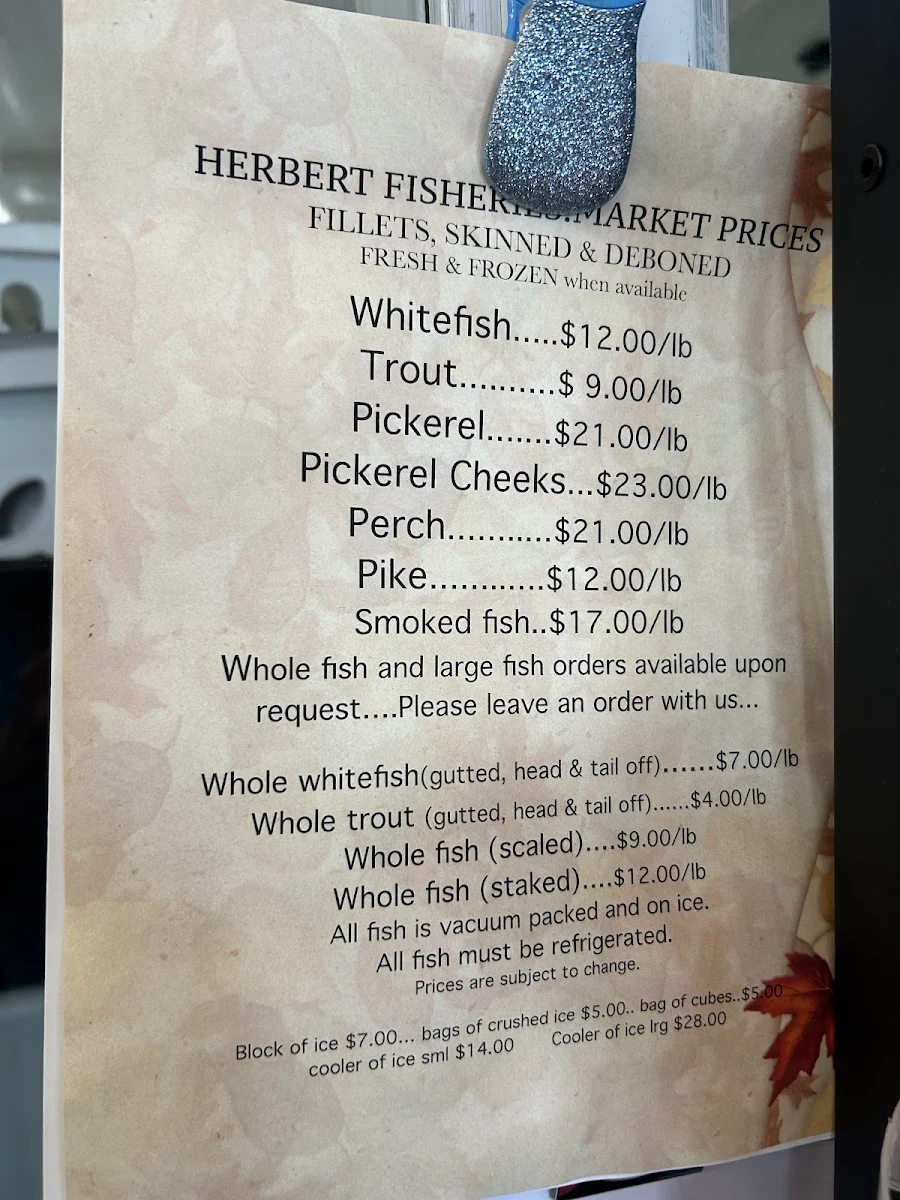 HERBERT FISHERIES..MARKET PRICES
FILLETS, SKINNED & DEBONED
FRESH & FROZEN when available
Whitefish.....$12.00/lb
Trout..........$ 9.00/lb
Pickerel.......$21.00/lb
Pickerel Cheeks...$23.00/lb
Perch...........$21.00/lb
Pike............$12.00/lb
Smoked fish..$17.00/lb
Whole fish and large fish orders available upon
request....Please leave an order with us...
Whole whitefish(gutted, head & tail off)......$7.00/lb
Whole trout (gutted, head & tail off)......$4.00/lb
Whole fish (scaled)....$9.00/lb
Whole fish (staked)....$12.00/lb
All fish is vacuum packed and on ice.
All fish must be refrigerated.
Prices are subject to change.
Block of ice $7.00... bags of crushed ice $5.00.. bag of cubes..$5.00
cooler of ice sml $14.00 Cooler of ice lrg $28.00